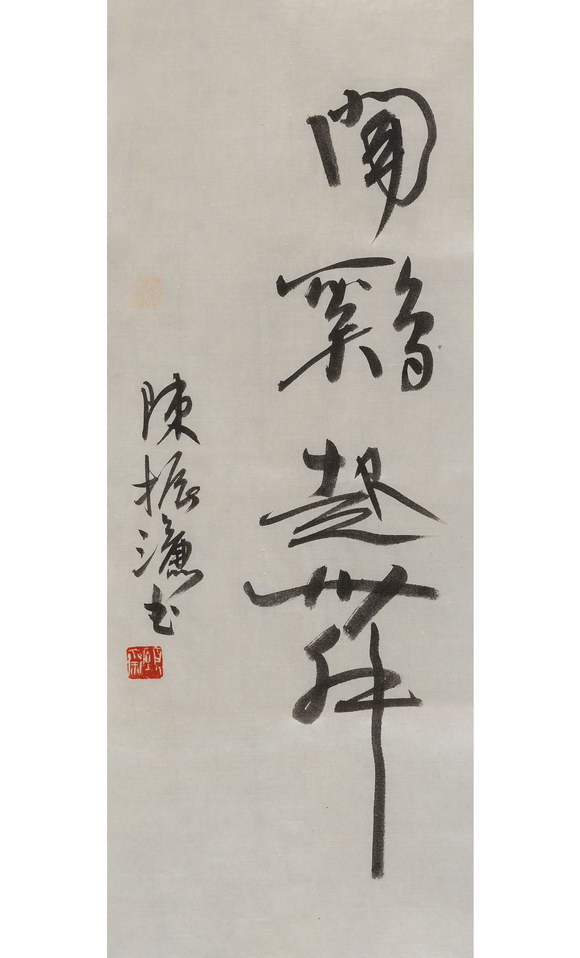 聞鷄起舞
陳振濂書